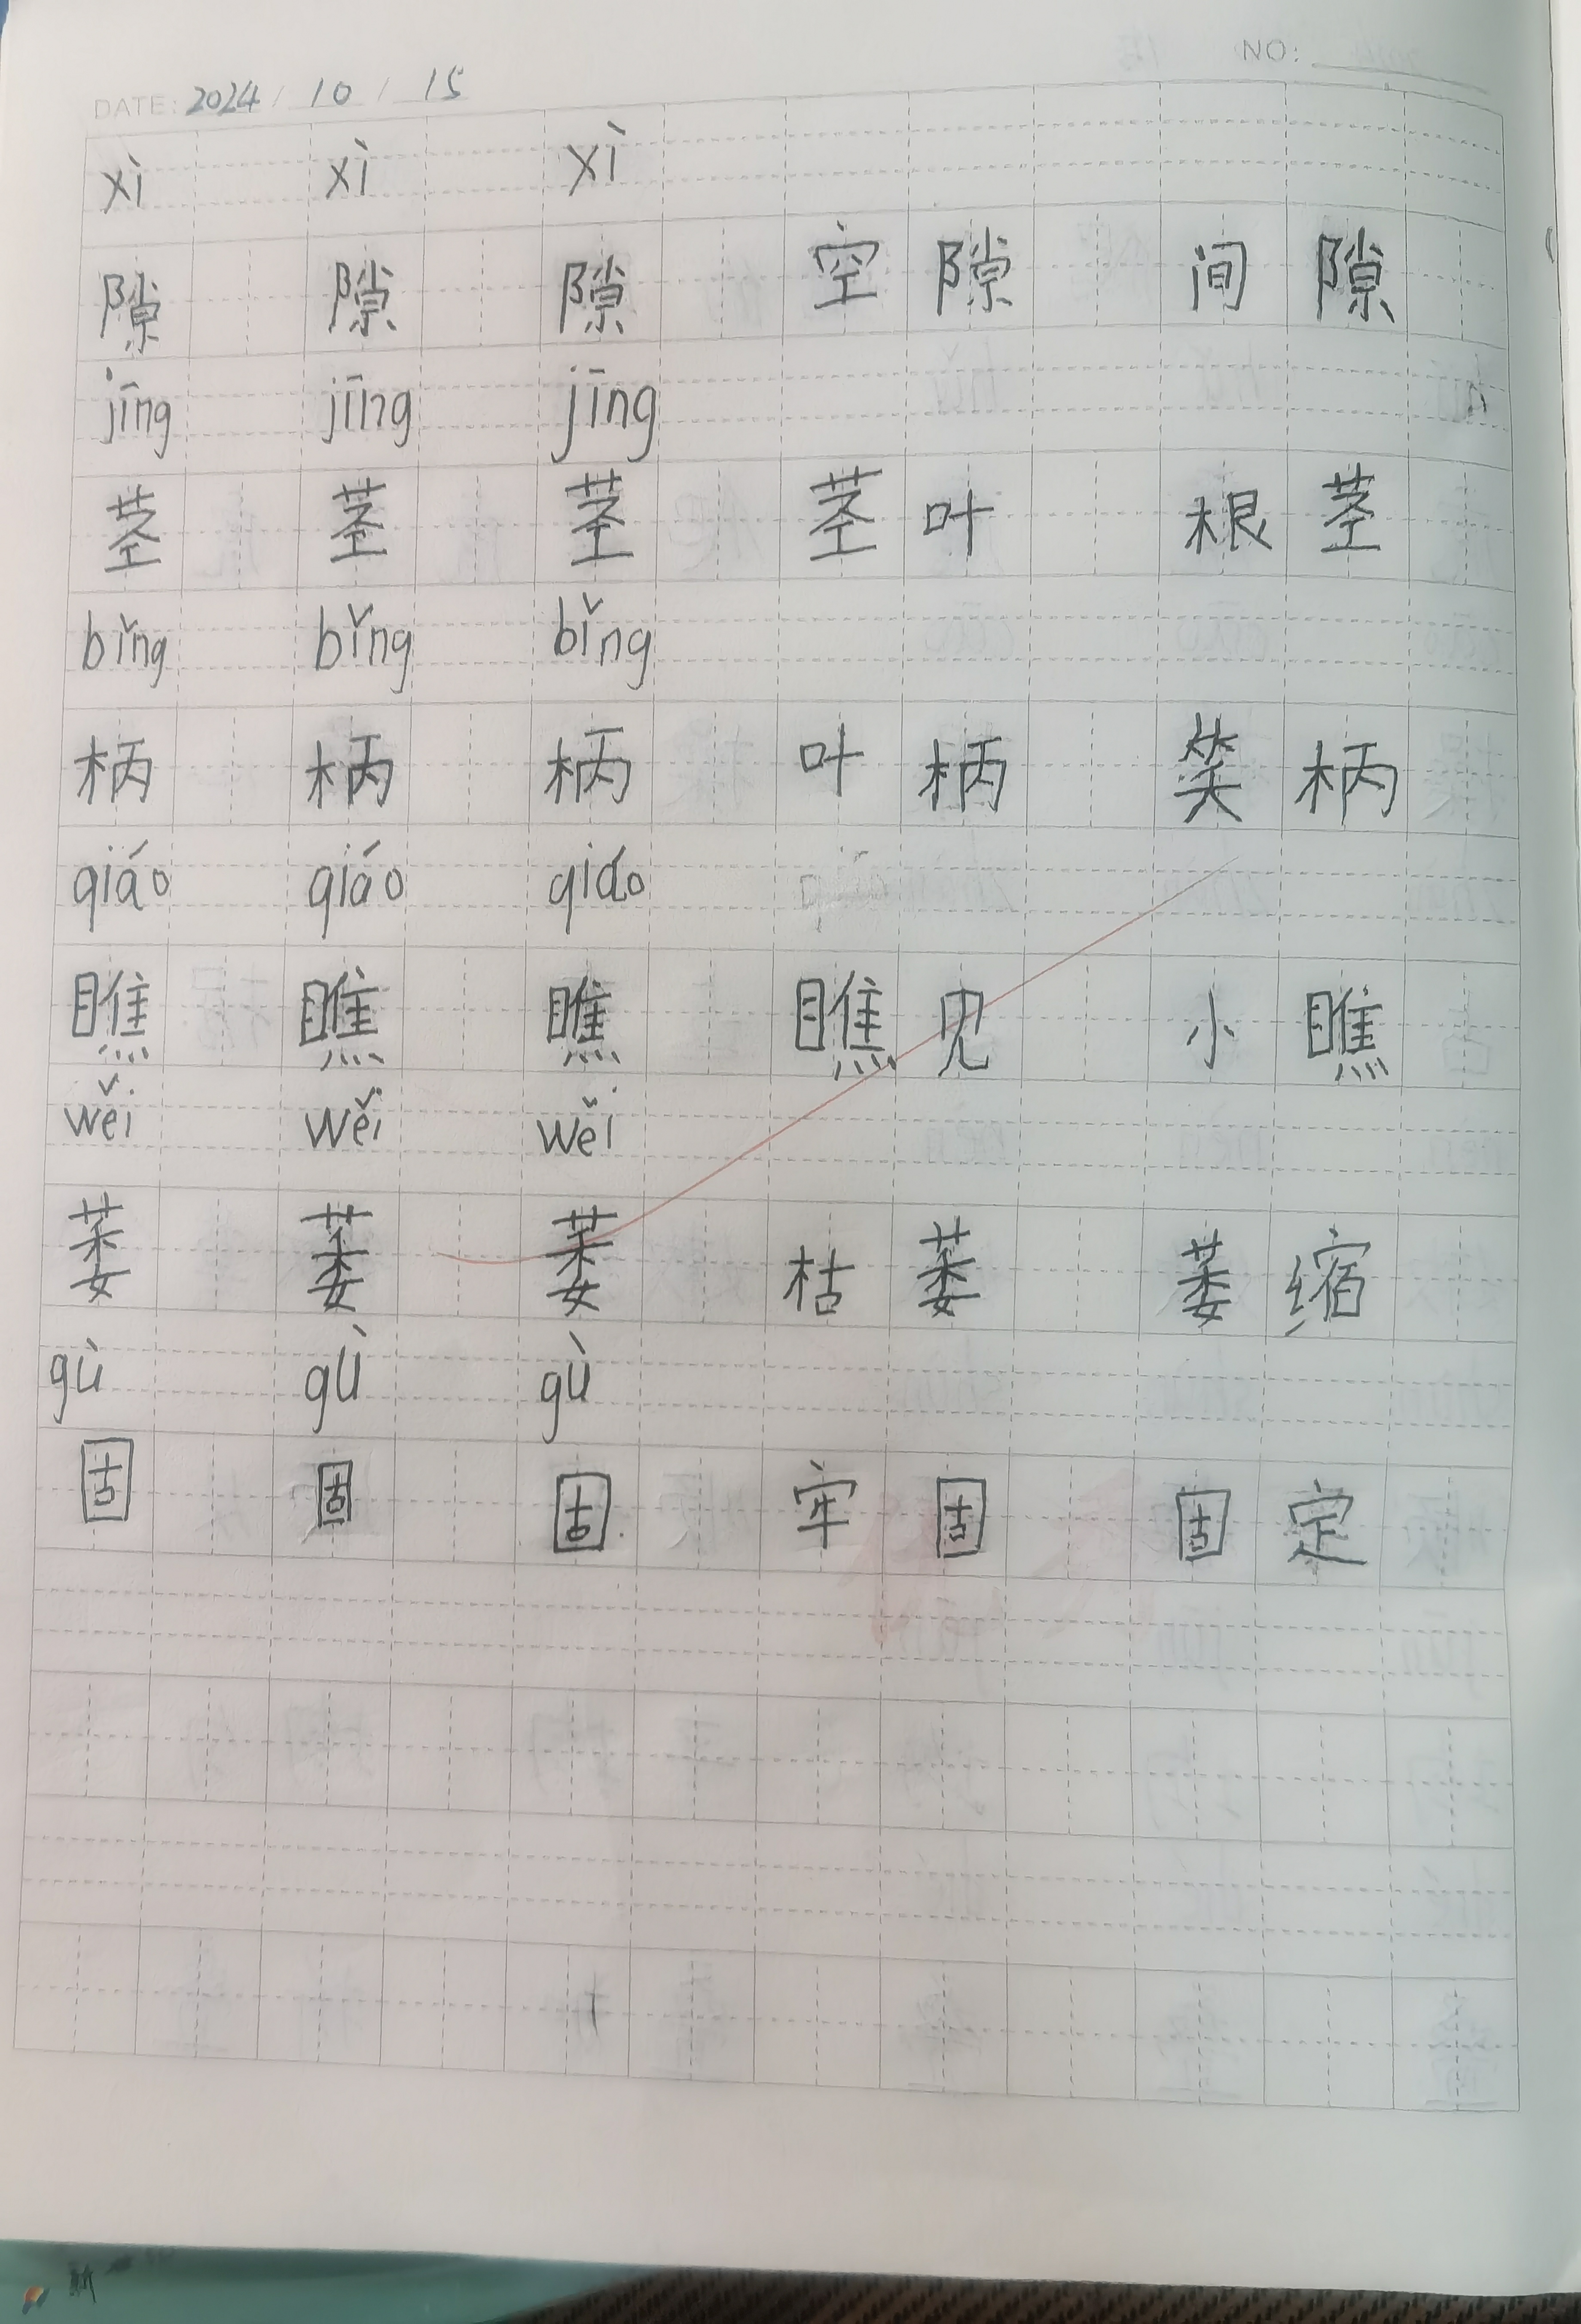 NO:
DATE: 2024 / 10 / 15
xì xì xì
隙 隙 隙 空隙 间隙
jīng jīng jīng
茎 茎 茎 茎叶 根茎
bǐng bǐng bǐng
柄 柄 柄 叶柄 笑柄
qiáo qiáo qiáo
瞧 瞧 瞧 瞧见 小瞧
wěi wěi wěi
萎 萎 萎 枯萎 萎缩
gù gù gù
固 固 固 牢固 固定
新